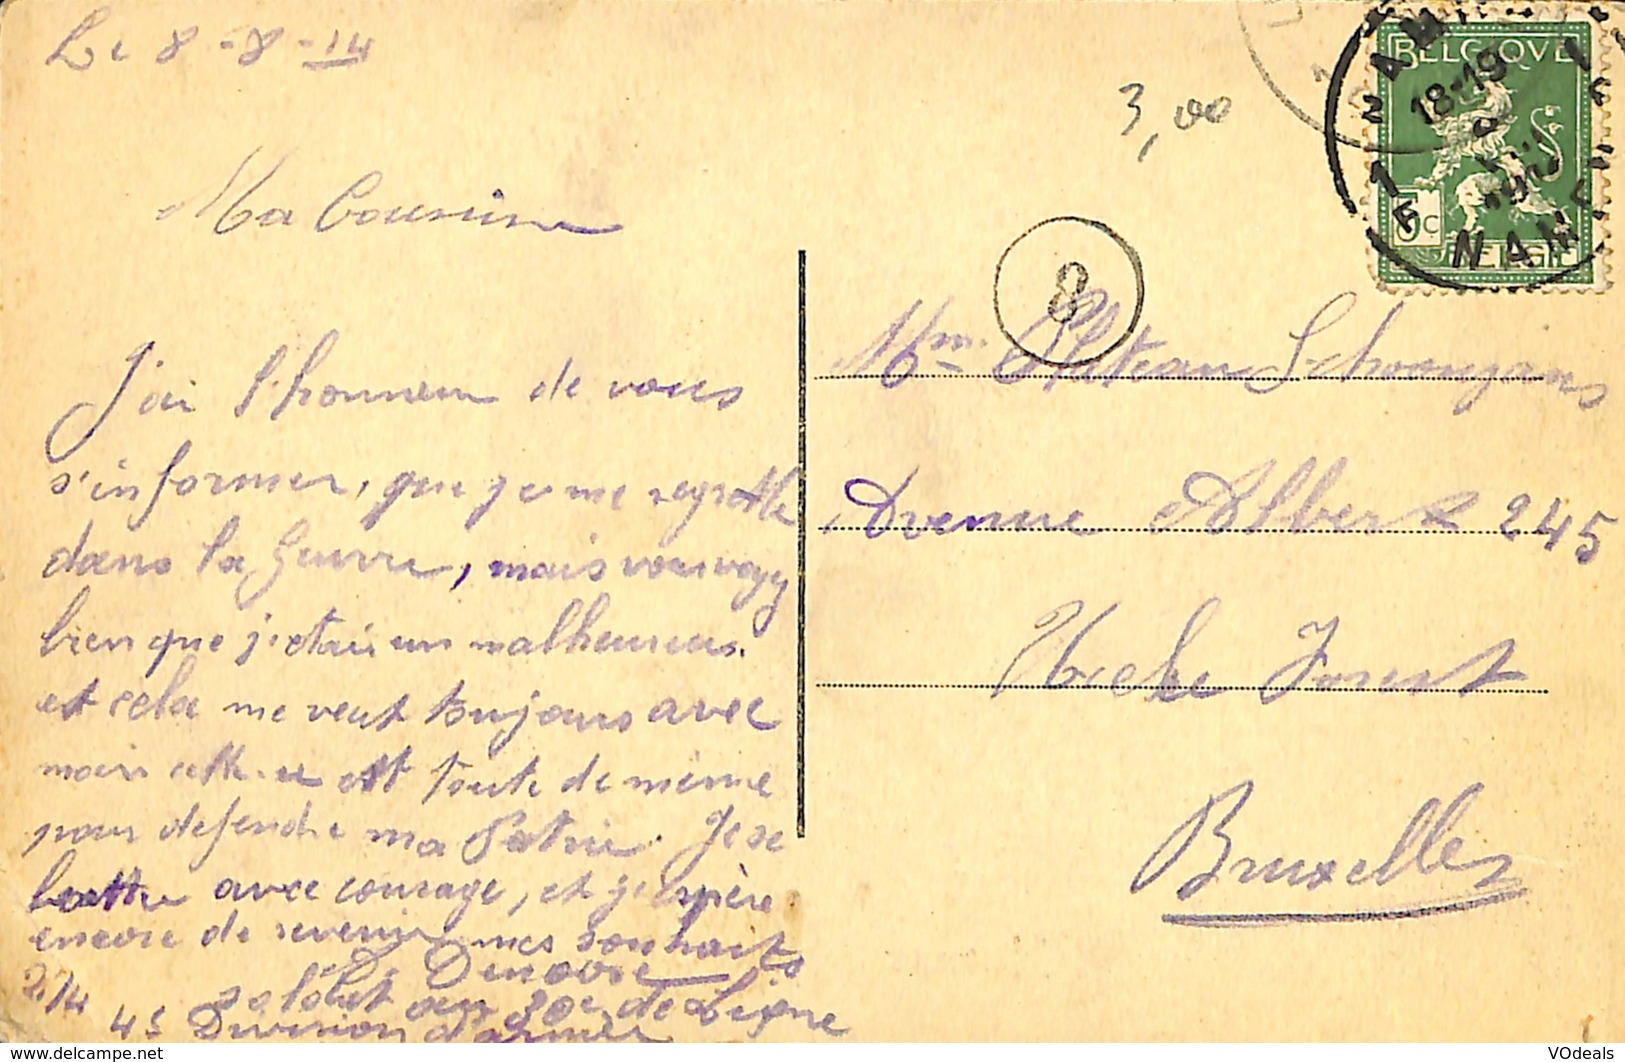 Le 8-8-14
3,00
BELGIQUE
18-19
NAM
5c
BELGIE
8
Ma Cousine
J'ai l'honneur de vous
s'informer, que je me regrette
dans la Guerre, mais vous voyez
bien que j'etais un malheureus.
et cela me veut toujours avec
moin est toute de même
pour defendre ma Patrie. Je se
battre avec courage, et j'espère
encore de revenir mes souhaits
soldat au 30e de Ligne
4e Division d'armée
2/14
Mme. Plateau Schoonjans
Avenue Albert 245
Uccle Forest
Bruxelles
VOdeals
www.delcampe.net